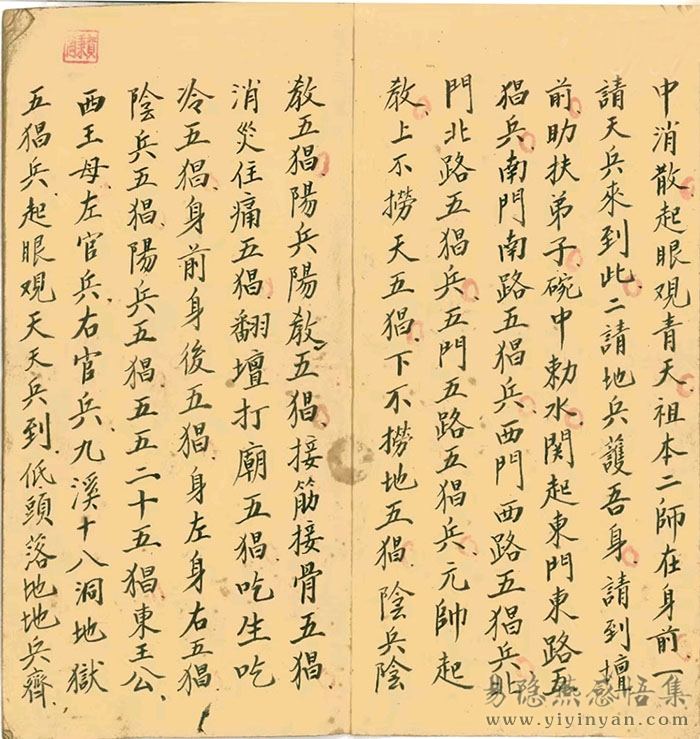 中消散起眼观青天祖本二師在身前一
請天兵來到此二請地兵護吾身請到壇
前助扶弟子碗中勅水関起東門東路五
猖兵南門南路五猖兵西門西路五猖兵北
門北路五猖兵五門五路五猖兵元帥起
教上不撈天五猖下不撈地五猖陰兵陰
教五猖陽兵陽教五猖接筋接骨五猖
消災住痛五猖翻壇打廟五猖吃生吃
冷五猖身前身後五猖身左身右五猖
陰兵五猖陽兵五猖五五二十五猖東王公
西王母左官兵右官兵九溪十八洞地獄
五猖兵起眼观天天兵到低頭落地地兵齊
易隐燕感悟集
www.yiyinyan.com